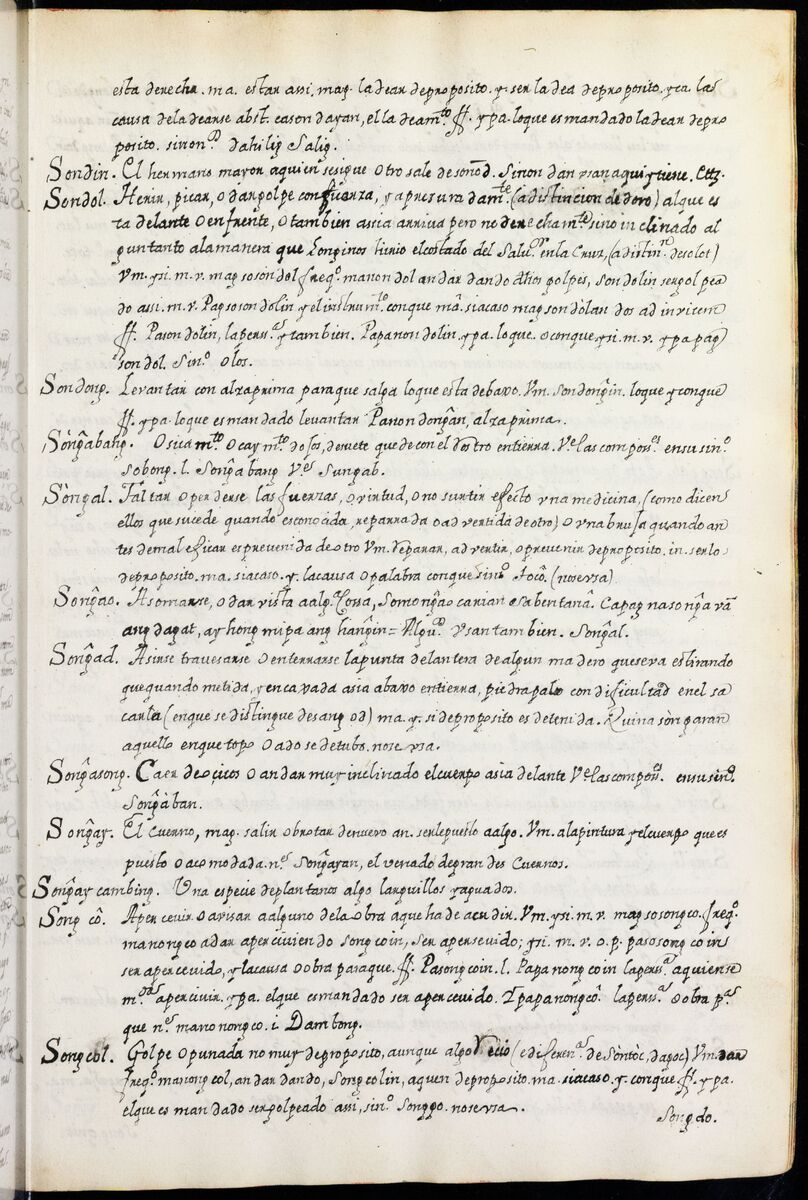 esta derecha. ma. estar assi, mag. ladear deproposito. y. ser la dea deproposito. yca las
causa dela dearse abst. cason dayan, ella deamto. ff. ypa. loque es mandado ladear depro
posito. sinonᵒ dahilig Salig.
Sondin. El hermano mayor aquien sesigue Otro sale desmᵒd. Sinon dan vsan aqui ytiene. Ettz.
Sondol. Herir, picar, o dar golpe con fuerza, y apresuradamte (a distincion de doro) alque es
ta delante o enfrente, o tambien assia arriva pero no derechamte sino inclinado al
gun tanto ala manera que Longinos hirio el costado del Salvor en la Cruz, (a distinn de solot)
Vm. y si. m. v. mag soson dol freqo. manon dol andar dando dhos golpes, son dolin ser golpea
do assi. m. v. Pag soson dolin y el instrumto. conque mâ. siacaso magson dolan dos ad invicem
ff. Pason dolin, la perss.ᵃ y tambien. Papanon dolin. ypa. loque. o conque, y si. m. v. ypa pag
son dol. Sinᵒ. Olos.
Sondong. Levantar con alzaprima paraque salga loque esta debaxo. Vm. sondongin. loque y conque
ff. ypa. loque es mandado levantar Panon dongan, alzaprima.
Songabang. Osicamto. O caymto. de os, de uete que de con el Rostro entierra. Ve. las composs. en su sinᵒ.
Sobong. l. Songabang Ve. Sungab.
Songal. Faltar o perderse las fuerzas, o virtud, o no surtir efecto vna medicina, (como dicen
ellos que sucede quando es conocida, reparada o advertida de otro) o vna bruja quando an
tes demaleficar es prevenida de otro Vm. Reparar, advertir, o prevenir deproposito. in. serlo
deproposito. ma. siacaso. y. la causa o palabra conque sinᵒ. tocô. (nose vsa)
Songao. Asomarse, o dar vista aalgᵃ. Cossa, Somongao ca rian sa bentanâ. Capag nasonga vâ
ang dagat, ay hong mipa ang hangin = Algus. vsan tambien. Songal.
Songad. Asirse travesarse o enterrarse la punta delantera de algun madero que se va estirando
que quando metida, y encavada asia abaxo entierra, piedra palo con dificultad en el sa
carla (en que se distingue desang od) ma. y si deproposito es detenida. Quina songaran
aquello enque topo o ado se detubo. nose vsa.
Songasong. Caer de ocicos o andar muy inclinado el cuerpo asia delante Ve. las composs. en su sinᵒ.
Songaban.
Songay. El Cuerno, mag. salir o brotar denuevo an. ser le puesto aalgo. Vm. ala pintura y el cuerpo que es
puesto o acomodada. ns. Songayan, el venado de grandes Cuernos.
Songay cambing. Una especie de plantanos algo larguillos y aguados.
Song cô. Apercevir o avisar aalguno dela obra aque ha de acudir. Vm. y si. m. v. mag sosongco. freqo.
manongco adar aperciviendo songcoin, ser apersevido; y si. m. v. o. p. pasosong coins
ser apercevido, y la causa o obra paraque. ff. Pasongcoin. l. Papanongcoin la perss.ᵃ aquiense
m.das apercivir. ypa. elque es mandado ser apercevido. Ypapanongcô. la perss.ᵃ o obra p.ᵃ
que ns. manonongco. i. Dambong.
Songcol. Golpe o punada no muy deproposito, aunque algo Recio (ediferen.ᵃ de Sontoc, dagoc) Vm. dar
freqo. manongcol, andar dando, Songcolin, aquen deproposito. ma. siacaso. y. conque. ff. ypa.
elque es mandado ser golpeado assi, sinᵒ. Songgo. nose vsa.
Songdo.